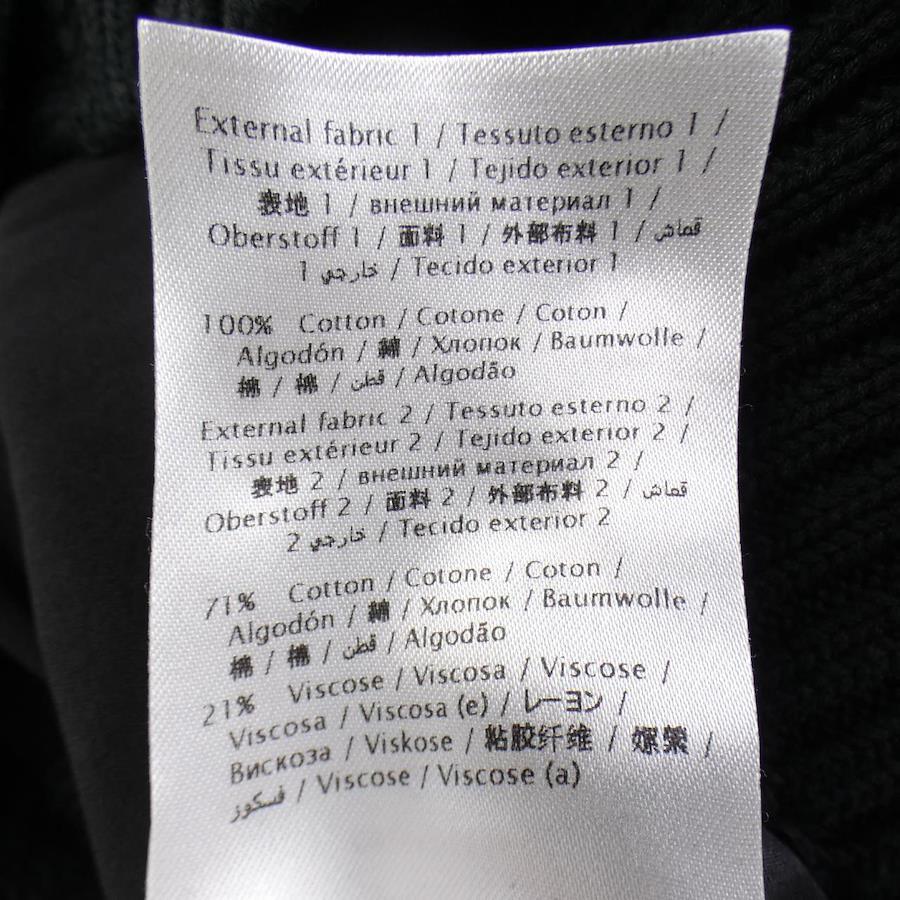 External fabric 1 / Tessuto esterno 1 /
Tissu extérieur 1 / Tejido exterior 1 /
表地 1 / внешний материал 1 /
Oberstoff 1 / 面料 1 / 外部布料 1 / قماش
خارجي 1 / Tecido exterior 1
100% Cotton / Cotone / Coton /
Algodón / 綿 / Хлопок / Baumwolle /
棉 / 棉 / قطن / Algodão
External fabric 2 / Tessuto esterno 2 /
Tissu extérieur 2 / Tejido exterior 2 /
表地 2 / внешний материал 2 /
Oberstoff 2 / 面料 2 / 外部布料 2 / قماش
خارجي 2 / Tecido exterior 2
71% Cotton / Cotone / Coton /
Algodón / 綿 / Хлопок / Baumwolle /
棉 / 棉 / قطن / Algodão
21% Viscose / Viscosa / Viscose /
Viscosa / Viscosa (e) / レーヨン /
Вискоза / Viskose / 粘胶纤维 / 嫘縈 /
فسكوز / Viscose / Viscose (a)